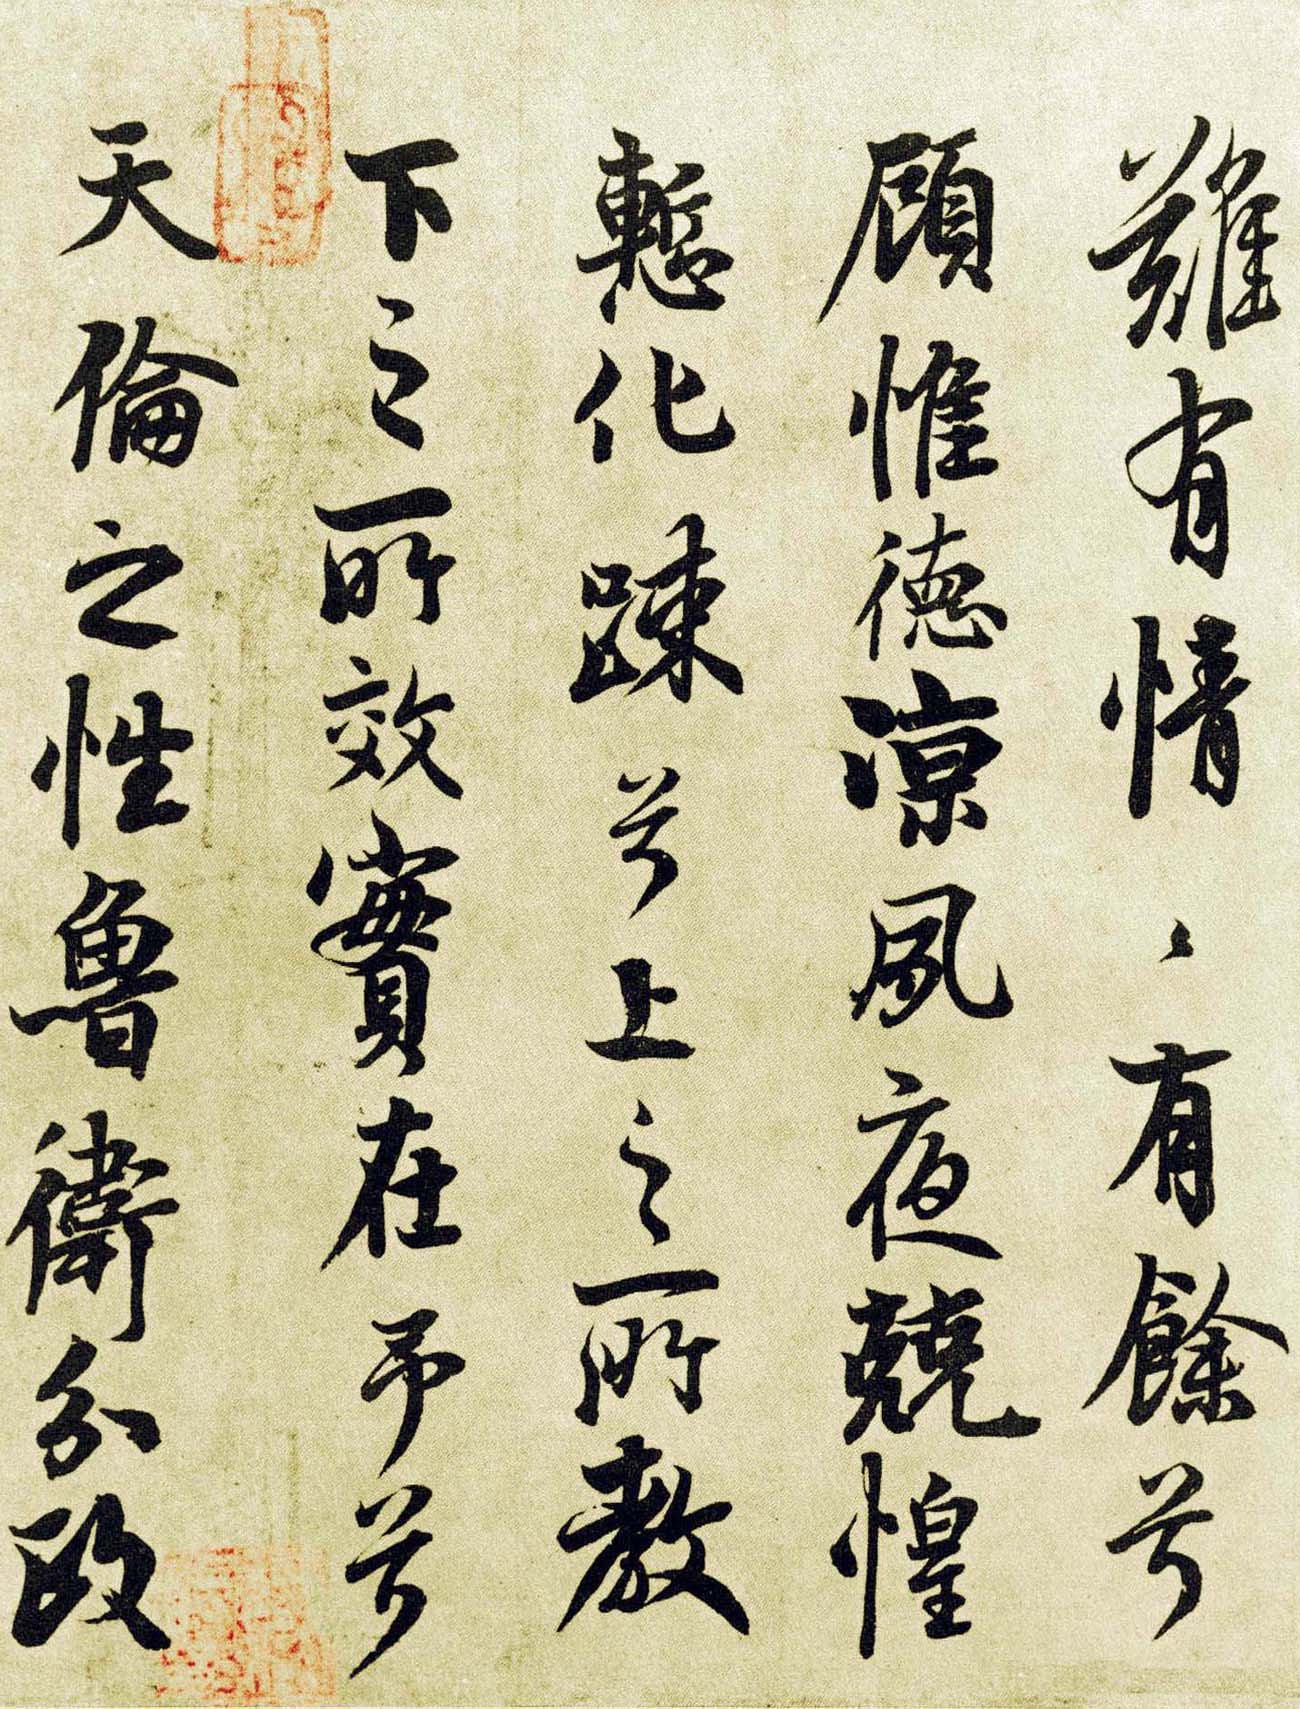 難有情〻有餘兮
顧惟德涼夙夜兢惶
慙化踈兮上之所教
下之所效實在予兮
天倫之性魯衛分政